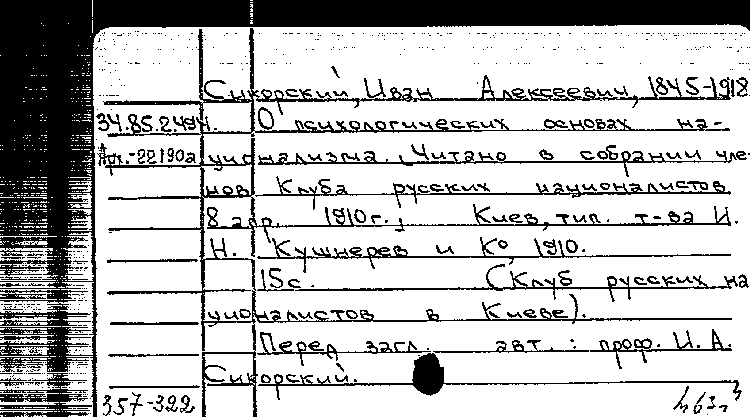 Сикорский, Иван Алексеевич, 1845-1918
34.85.2.494. О психологических основах на-
ционализма. [Читано в собрании чле-
нов Клуба русских националистов
8 апр. 1910 г.] Киев, тип. т-ва И.
Н. Кушнерев и К°, 1910.
15 с. (Клуб русских на
ционалистов в Киеве).
Перед загл. авт.: проф. И. А.
Сикорский.
357-322